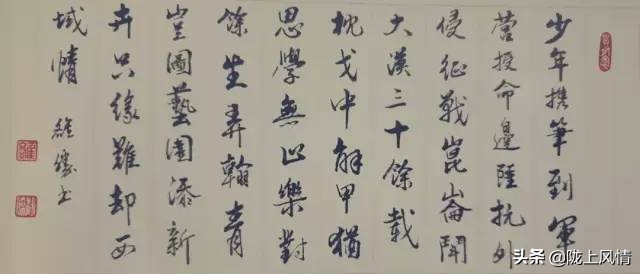 少年携筆到軍
营授命邊陲抗外
侵征戰崑崙鬪
大漠三十餘載
枕戈中解甲猶
思學無止樂對
餘生弄翰青
豈圖藝園添新
卉只缘難却西
域情 书
头条 @陇上风情